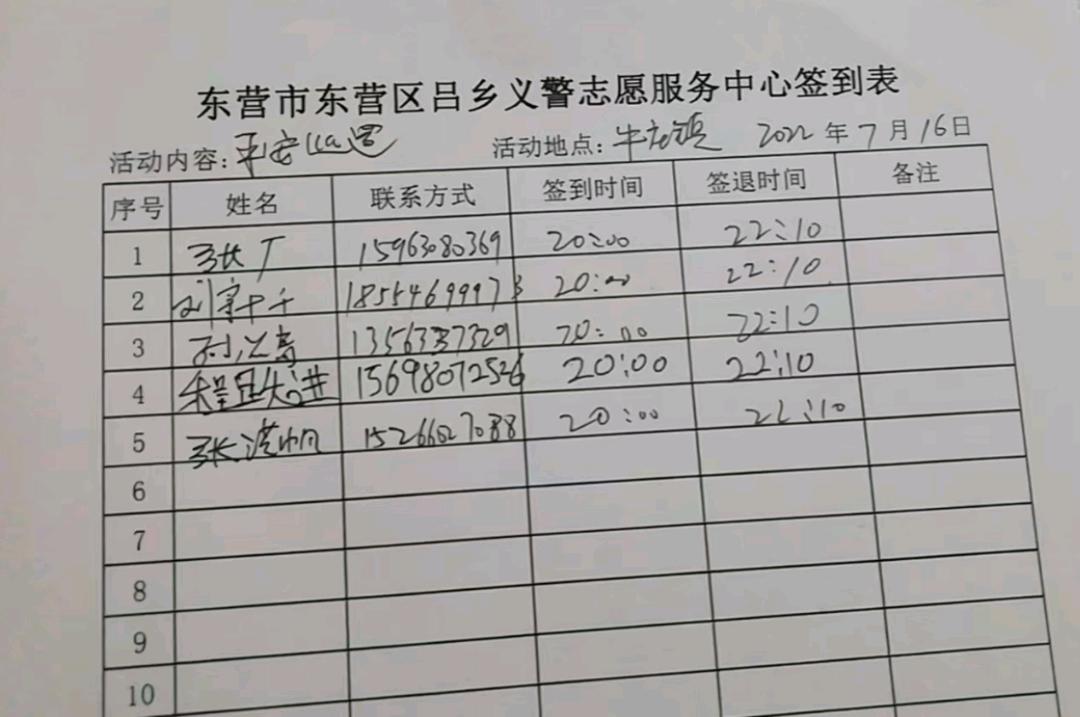 东营市东营区吕乡义警志愿服务中心签到表
活动内容: 平安巡逻 活动地点: 牛庄镇 2022年7月16日
序号 姓名 联系方式 签到时间 签退时间 备注
1 张广 15963080369 20:00 22:10
2 20:00 22:10
3 20:00 22:10
4 15698072526 20:00 22:10
5 张洪帅 15266027088 20:00 22:10
6
7
8
9
10